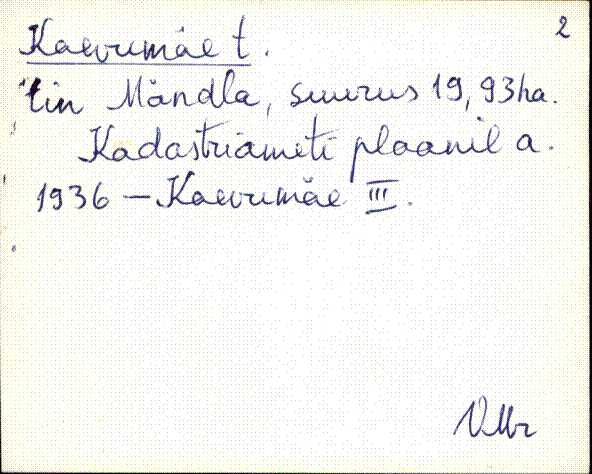 2
Kaevumäe t.
tin Mändla, suurus 19,93ha.
Kadastriameti plaanil a.
1936 – Kaevumäe III.
VMr